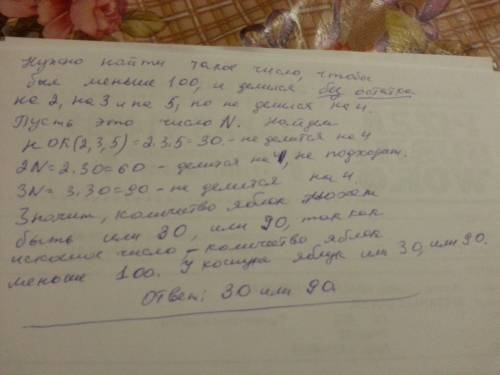 Нужно найти такое число, чтобы
был меньше 100, и делился без остатка
на 2, на 3 и на 5, но не делился на 4.
Пусть это число N. Найдем
НОК(2,3,5)=2.3.5=30.- не делится на 4
2N=2.30=60 - делится на 4, не подходит.
3N=3.30=90 - не делится на 4.
Значит, количество яблок может
быть или 30, или 90, так как
искомое число - количество яблок
меньше 100. У кошика яблук или 30, или 90.
Ответ: 30 или 90